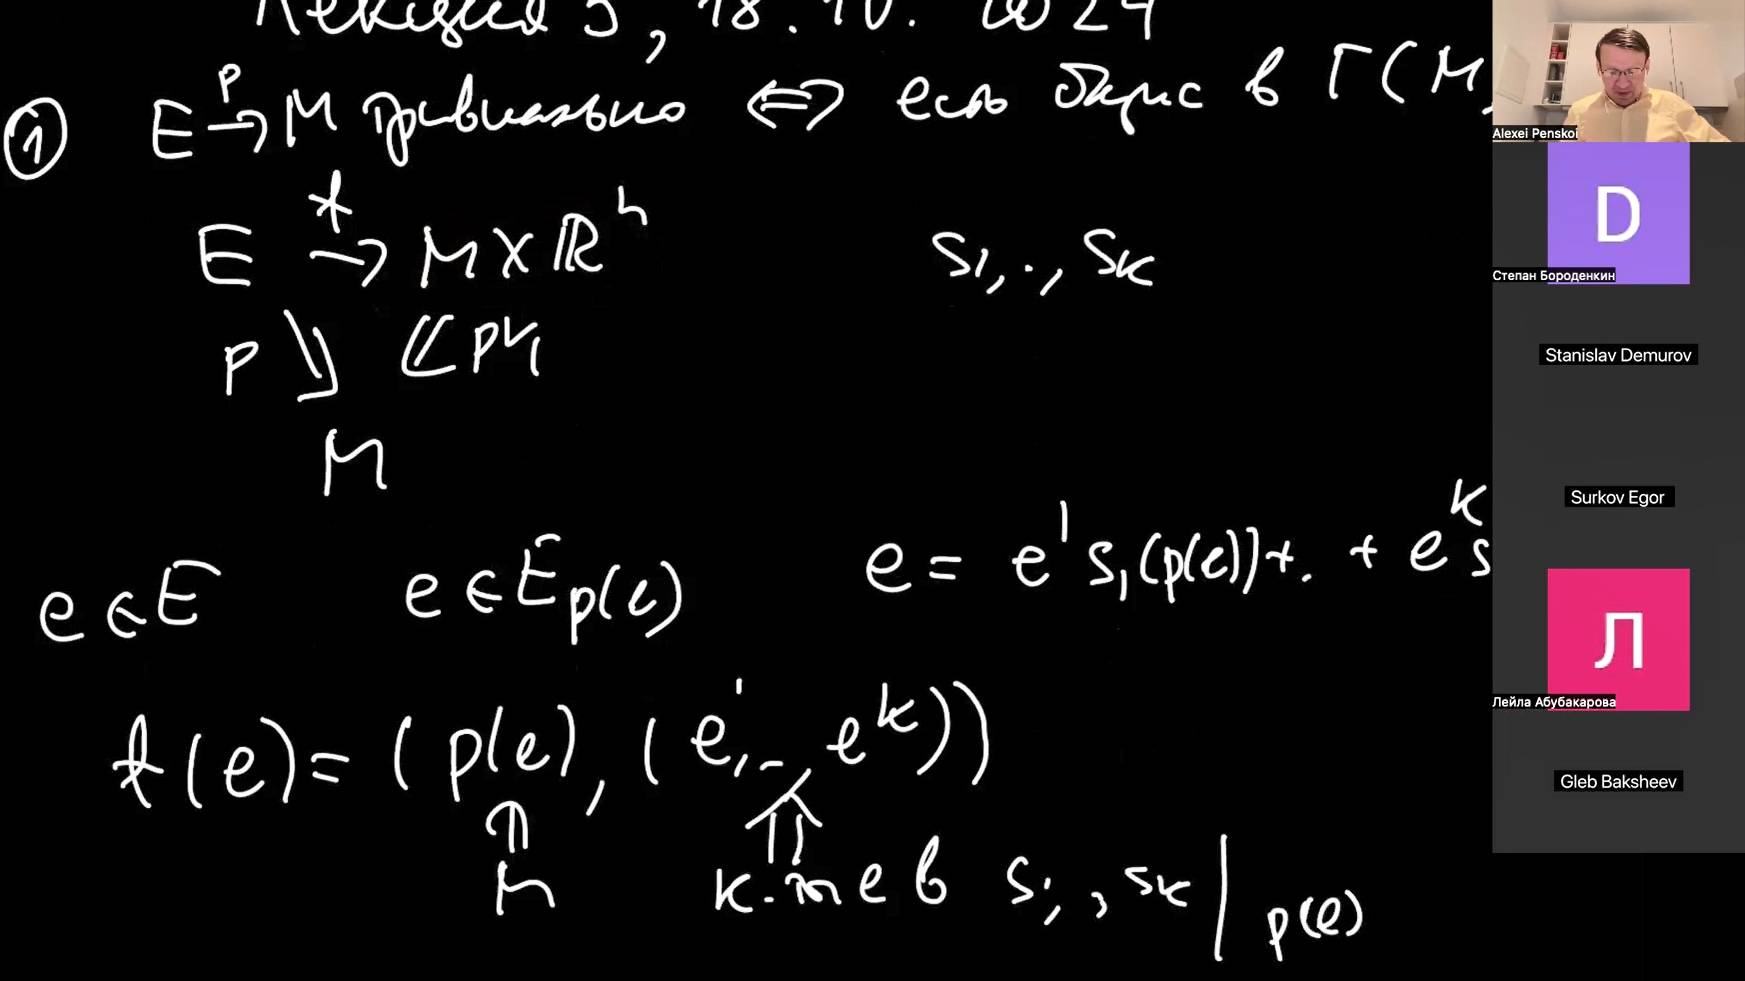 Лекция 5, 18.10.2024
① E →ᵖ M тривиально ⟺ есть базис в Γ(M,
E →ᵗ M × ℝⁿ s₁, ., sₖ
p pr₁
M
e ∈ E e ∈ E_p(e) e = e¹ s₁(p(e)) + . + eᵏ s
t(e) = (p(e), (e¹, .., eᵏ))
⇑ ⇑
M к-ты e в s₁, , sₖ |_p(e)
Alexei Penskoi
D
Степан Бороденкин
Stanislav Demurov
Surkov Egor
Л
Лейла Абубакарова
Gleb Baksheev